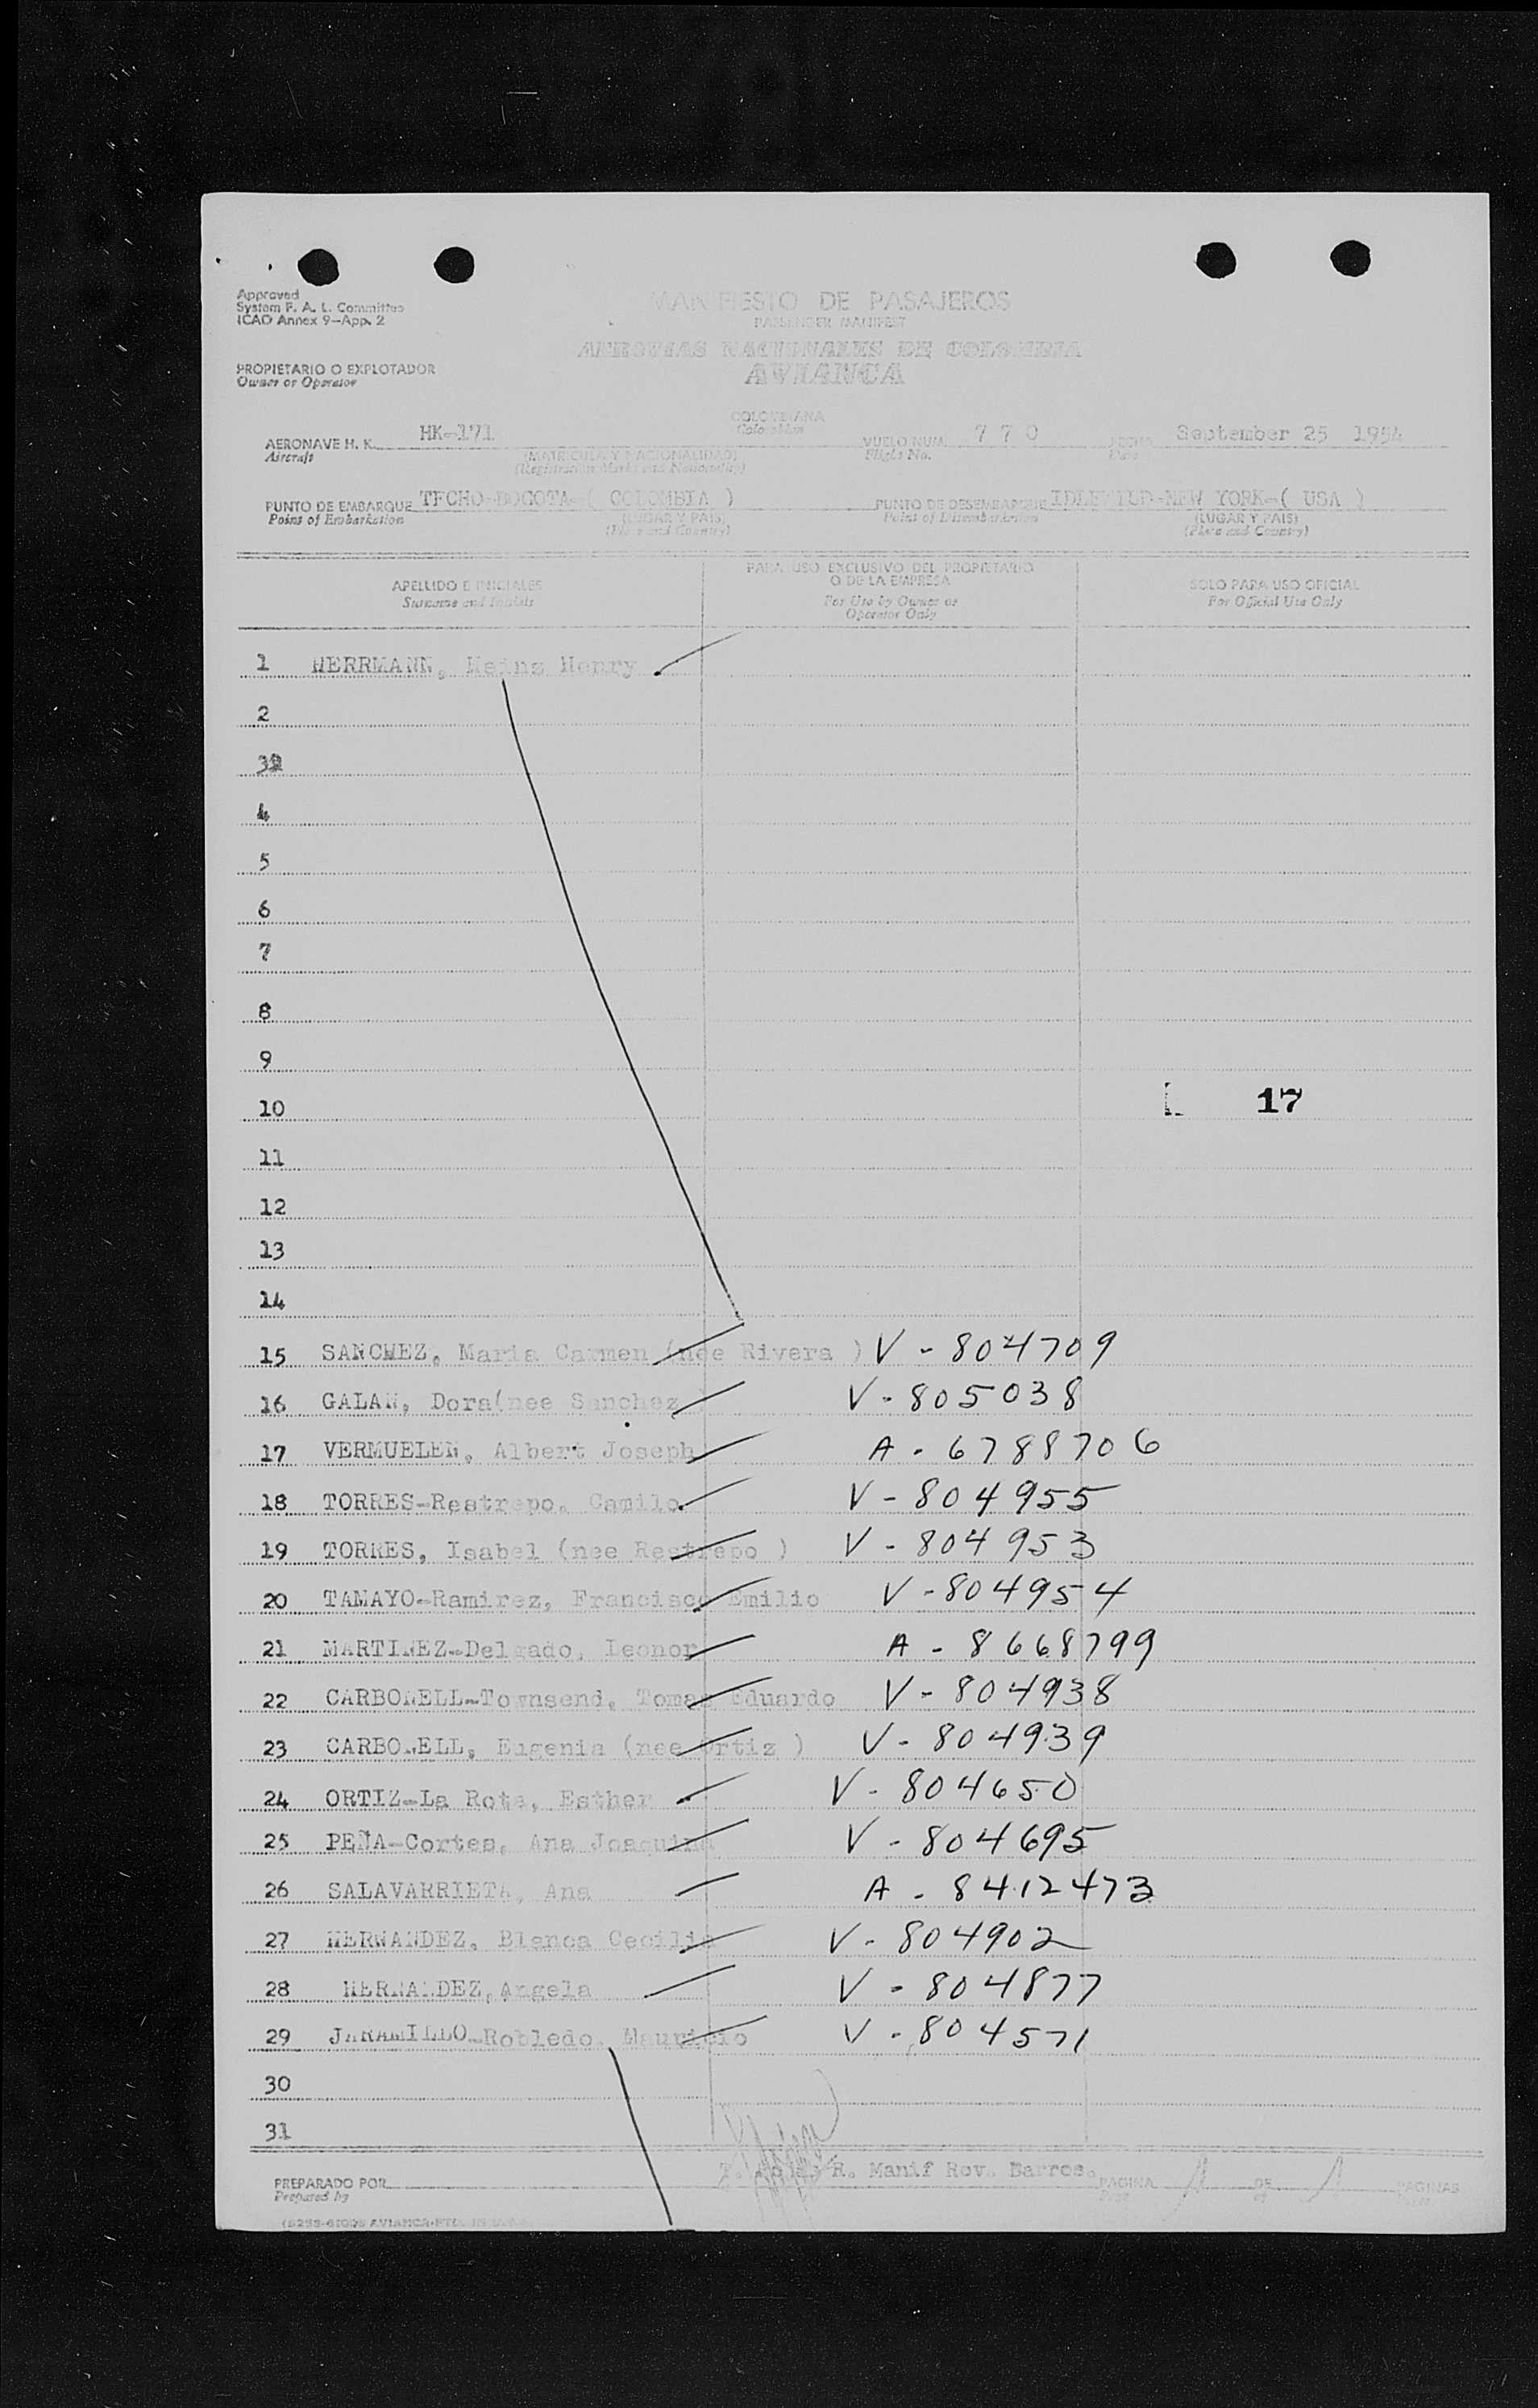 Approved
System F. A. L. Committee
ICAO Annex 9-App. 2
MANIFIESTO DE PASAJEROS
PASSENGER MANIFEST
AEROVIAS NACIONALES DE COLOMBIA
AVIANCA
PROPIETARIO O EXPLOTADOR
Owner or Operator
COLOMBIANA
Colombian
AERONAVE H. K. HK-171 VUELO NUM. 7 7 0 FECHA September 25 1954
Aircraft (MATRICULA Y NACIONALIDAD) Flight No. Date
(Registration Marks and Nationality)
PUNTO DE EMBARQUE TECHO-BOGOTA-( COLOMBIA ) PUNTO DE DESEMBARQUE IDLEWILD-NEW YORK-( USA )
Point of Embarkation (LUGAR Y PAIS) Point of Disembarkation (LUGAR Y PAIS)
(Place and Country) (Place and Country)
APELLIDO E INICIALES PARA USO EXCLUSIVO DEL PROPIETARIO O DE LA EMPRESA SOLO PARA USO OFICIAL
Surname and Initials For Use by Owner or Operator Only For Official Use Only
1 HERRMANN, Heinz Henry
2
3
4
5
6
7
8
9
10 17
11
12
13
14
15 SANCHEZ, Maria Carmen (nee Rivera ) V - 804709
16 GALAN, Dora(nee Sanchez ) V - 805038
17 VERMUELEN, Albert Joseph A - 6788706
18 TORRES-Restrepo, Camilo V - 804955
19 TORRES, Isabel (nee Restrepo ) V - 804953
20 TAMAYO-Ramirez, Francisco Emilio V - 804954
21 MARTINEZ-Delgado, Leonor A - 8668799
22 CARBONELL-Townsend, Tomas Eduardo V - 804938
23 CARBONELL, Eugenia (nee Ortiz ) V - 804939
24 ORTIZ-La Rota, Esther V - 804650
25 PEÑA-Cortes, Ana Joaquina V - 804695
26 SALAVARRIETA, Ana A - 8412473
27 HERNANDEZ, Blanca Cecilia V - 804902
28 HERNANDEZ, Angela V - 804877
29 JARAMILLO-Robledo, Mauricio V - 804571
30
31
PREPARADO POR R. Manif Rev. Barros. PAGINA 1 DE 1 PAGINAS
Prepared by